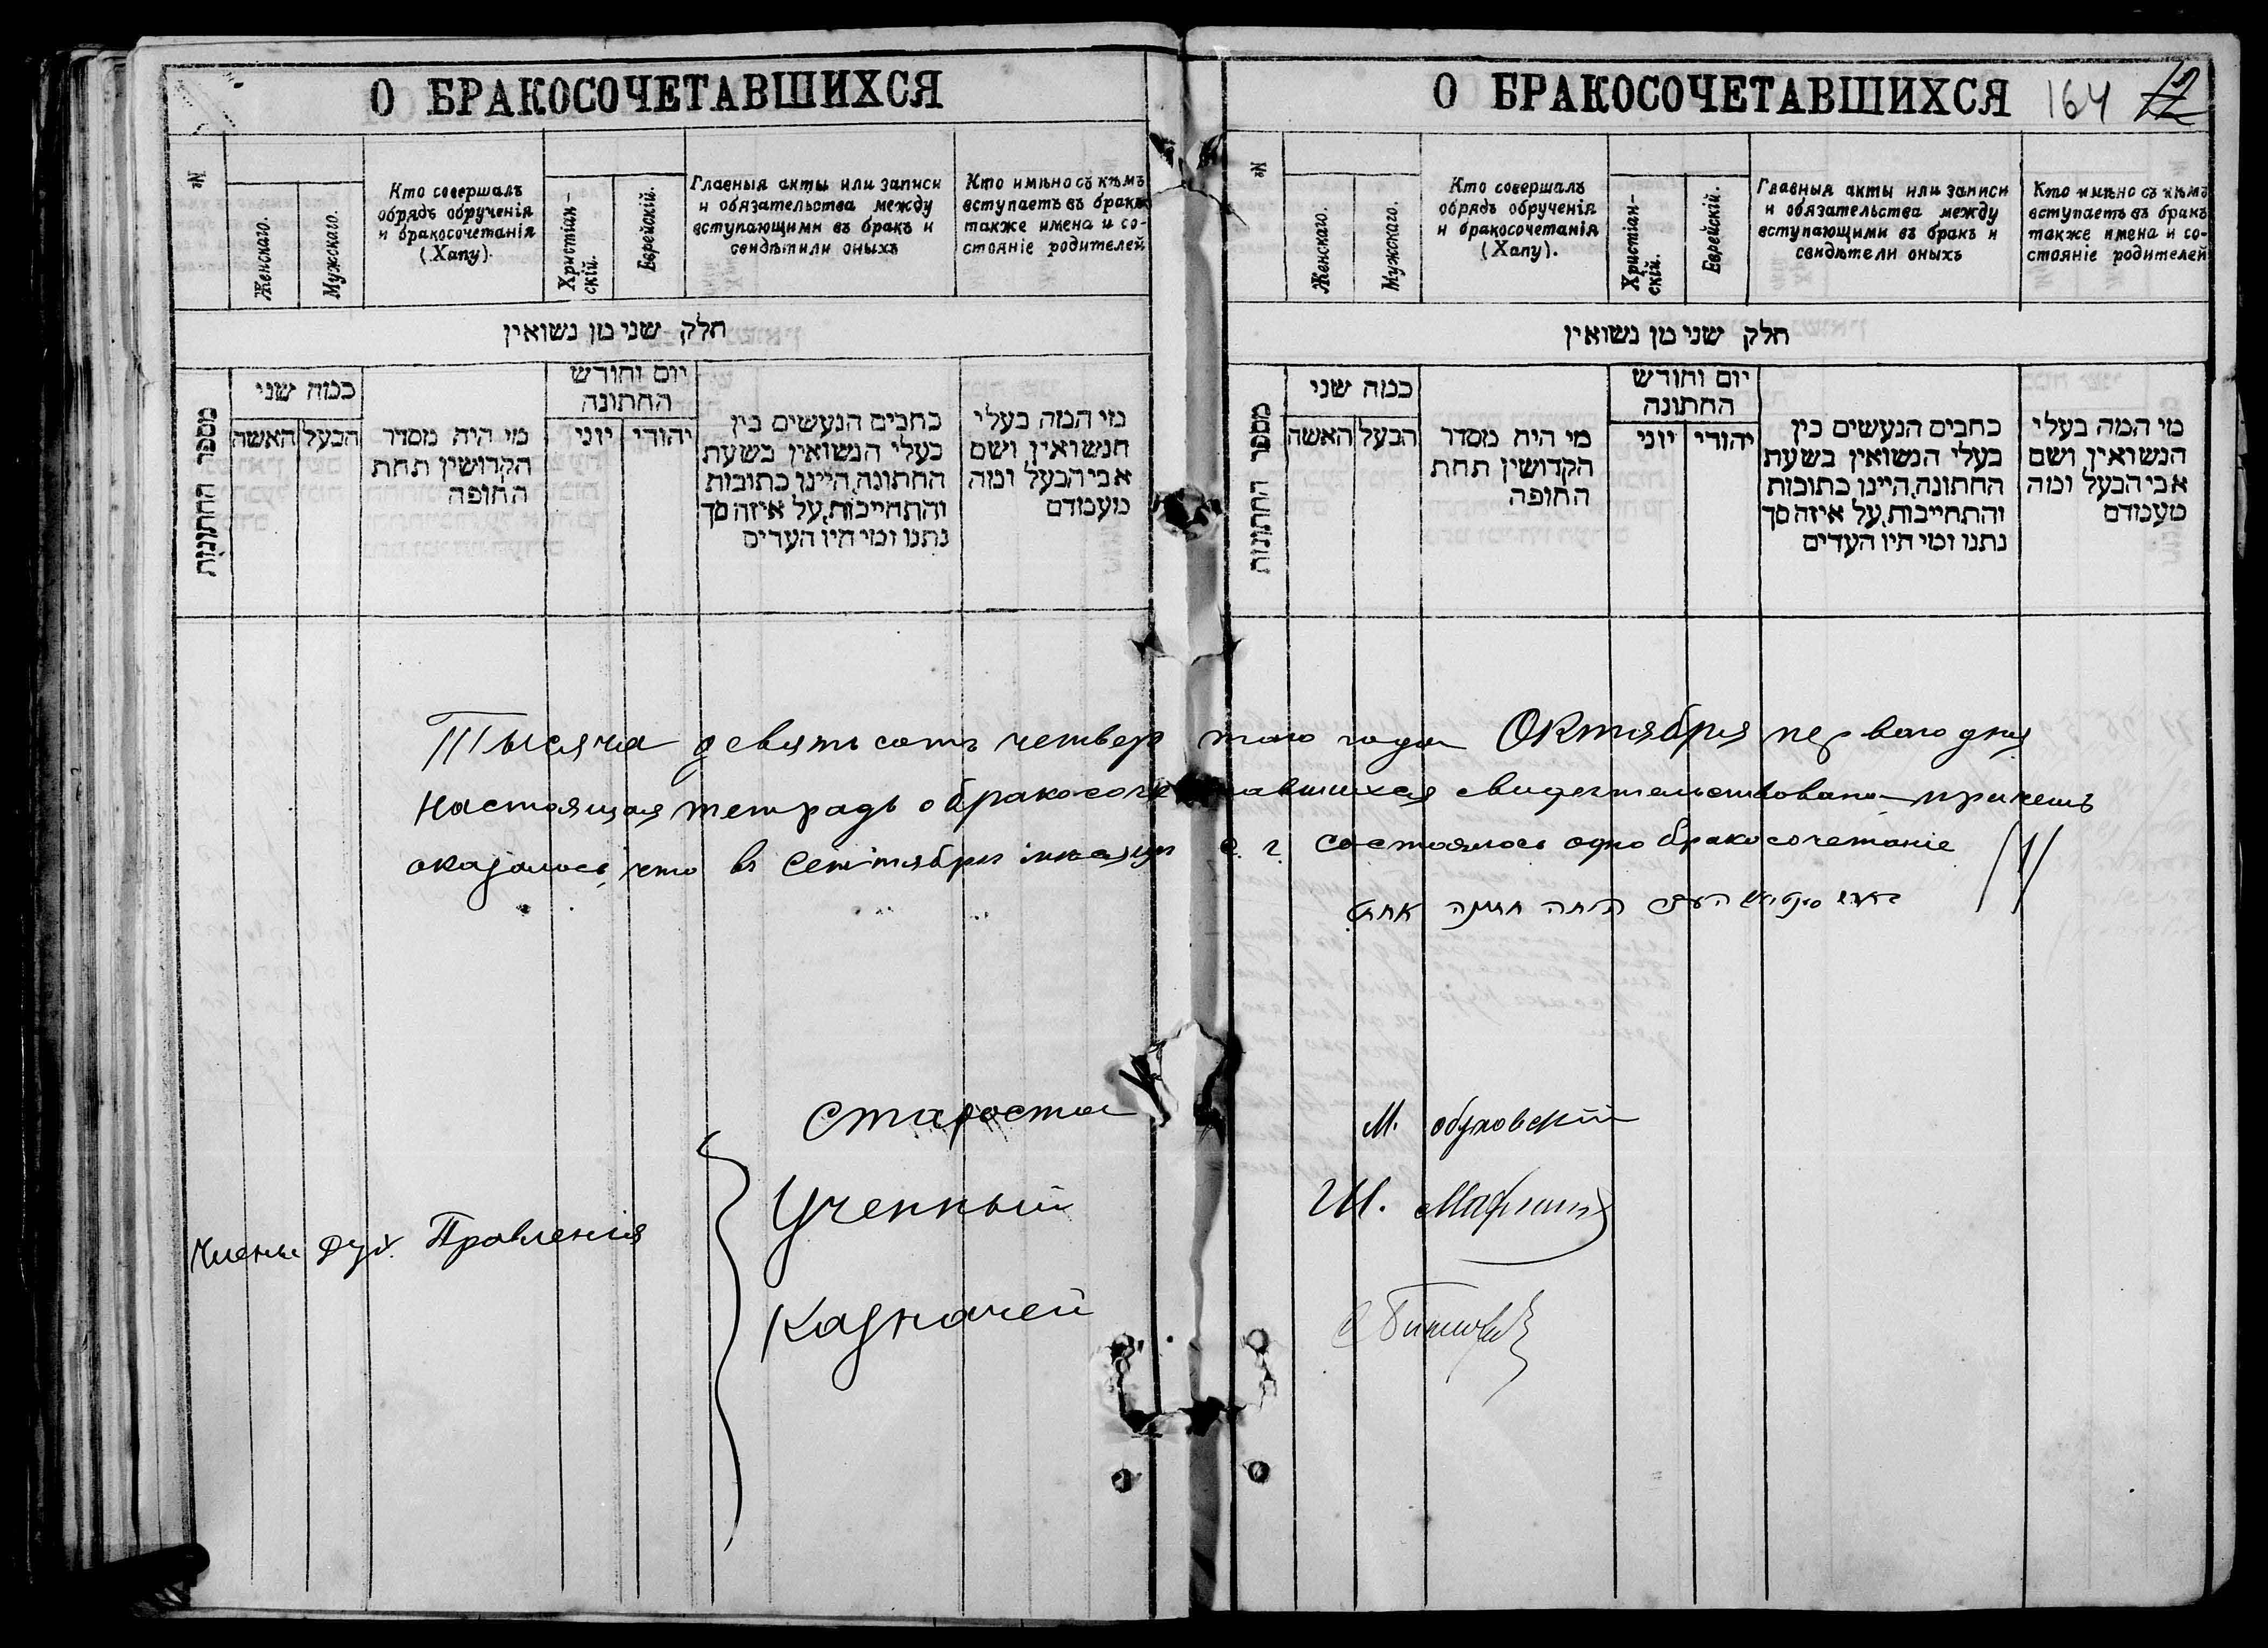 О БРАКОСОЧЕТАВШИХСЯ
№
Женскаго.
Мужскаго.
Кто совершалъ
обрядъ обрученія
и бракосочетанія
(Хапу).
Христіан-
скій.
Еврейскій.
Главныя акты или записи
и обязательства между
вступающими въ бракъ и
свидѣтили оныхъ
Кто имѣно съ кѣмъ
вступаетъ въ бракъ
также имена и со-
стояніе родителей
חלק שני מן נשואין
מספר החתונות
כמה שני
האשה
הבעל
מי היה מסדר
הקדושין תחת
החופה
יום וחודש
החתונה
יוני
יהודי
כתבים הנעשים בין
בעלי הנשואין בשעת
החתונה, היינו כתובות
והתחייבות, על איזה סך
נתנו ומי היו העדים
מי המה בעלי
הנשואין ושם
אבי הבעל ומה
מעמדם
О БРАКОСОЧЕТАВШИХСЯ
164 12
№
Женскаго.
Мужскаго.
Кто совершалъ
обрядъ обрученія
и бракосочетанія
(Хапу).
Христіан-
скій.
Еврейскій.
Главныя акты или записи
и обязательства между
вступающими въ бракъ и
свидѣтели оныхъ
Кто имѣно съ кѣмъ
вступаетъ въ бракъ
также имена и со-
стояніе родителей
חלק שני מן נשואין
מספר החתונות
כמה שני
האשה
הבעל
מי היה מסדר
הקדושין תחת
החופה
יום וחודש
החתונה
יוני
יהודי
כתבים הנעשים בין
בעלי הנשואין בשעת
החתונה, היינו כתובות
והתחייבות, על איזה סך
נתנו ומי היו העדים
מי המה בעלי
הנשואין ושם
אבי הבעל ומה
מעמדם
Тысяча девятьсотъ четвертаго года Октября перваго дня
настоящая тетрадь о бракосочетавшихся свидетельствована причемъ
оказалось, что въ Сентябри с. г. состоялось одно бракосочетаніе /1/
היתה חתונה אחת
Староста М. Обуховскій
Члены Дух. Правленія
Ученный Ш.
Казначей